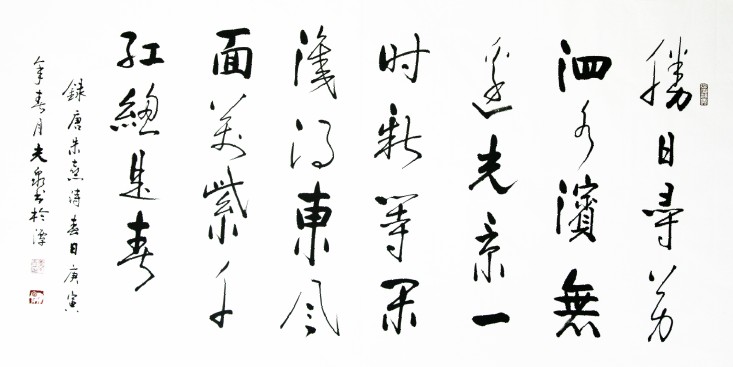 勝日尋芳
泗水濱無
邊光景一
时新等閑
識得東風
面萬紫千
紅總是春
錄唐朱熹詩春日庚寅
年春月光泉书於潭